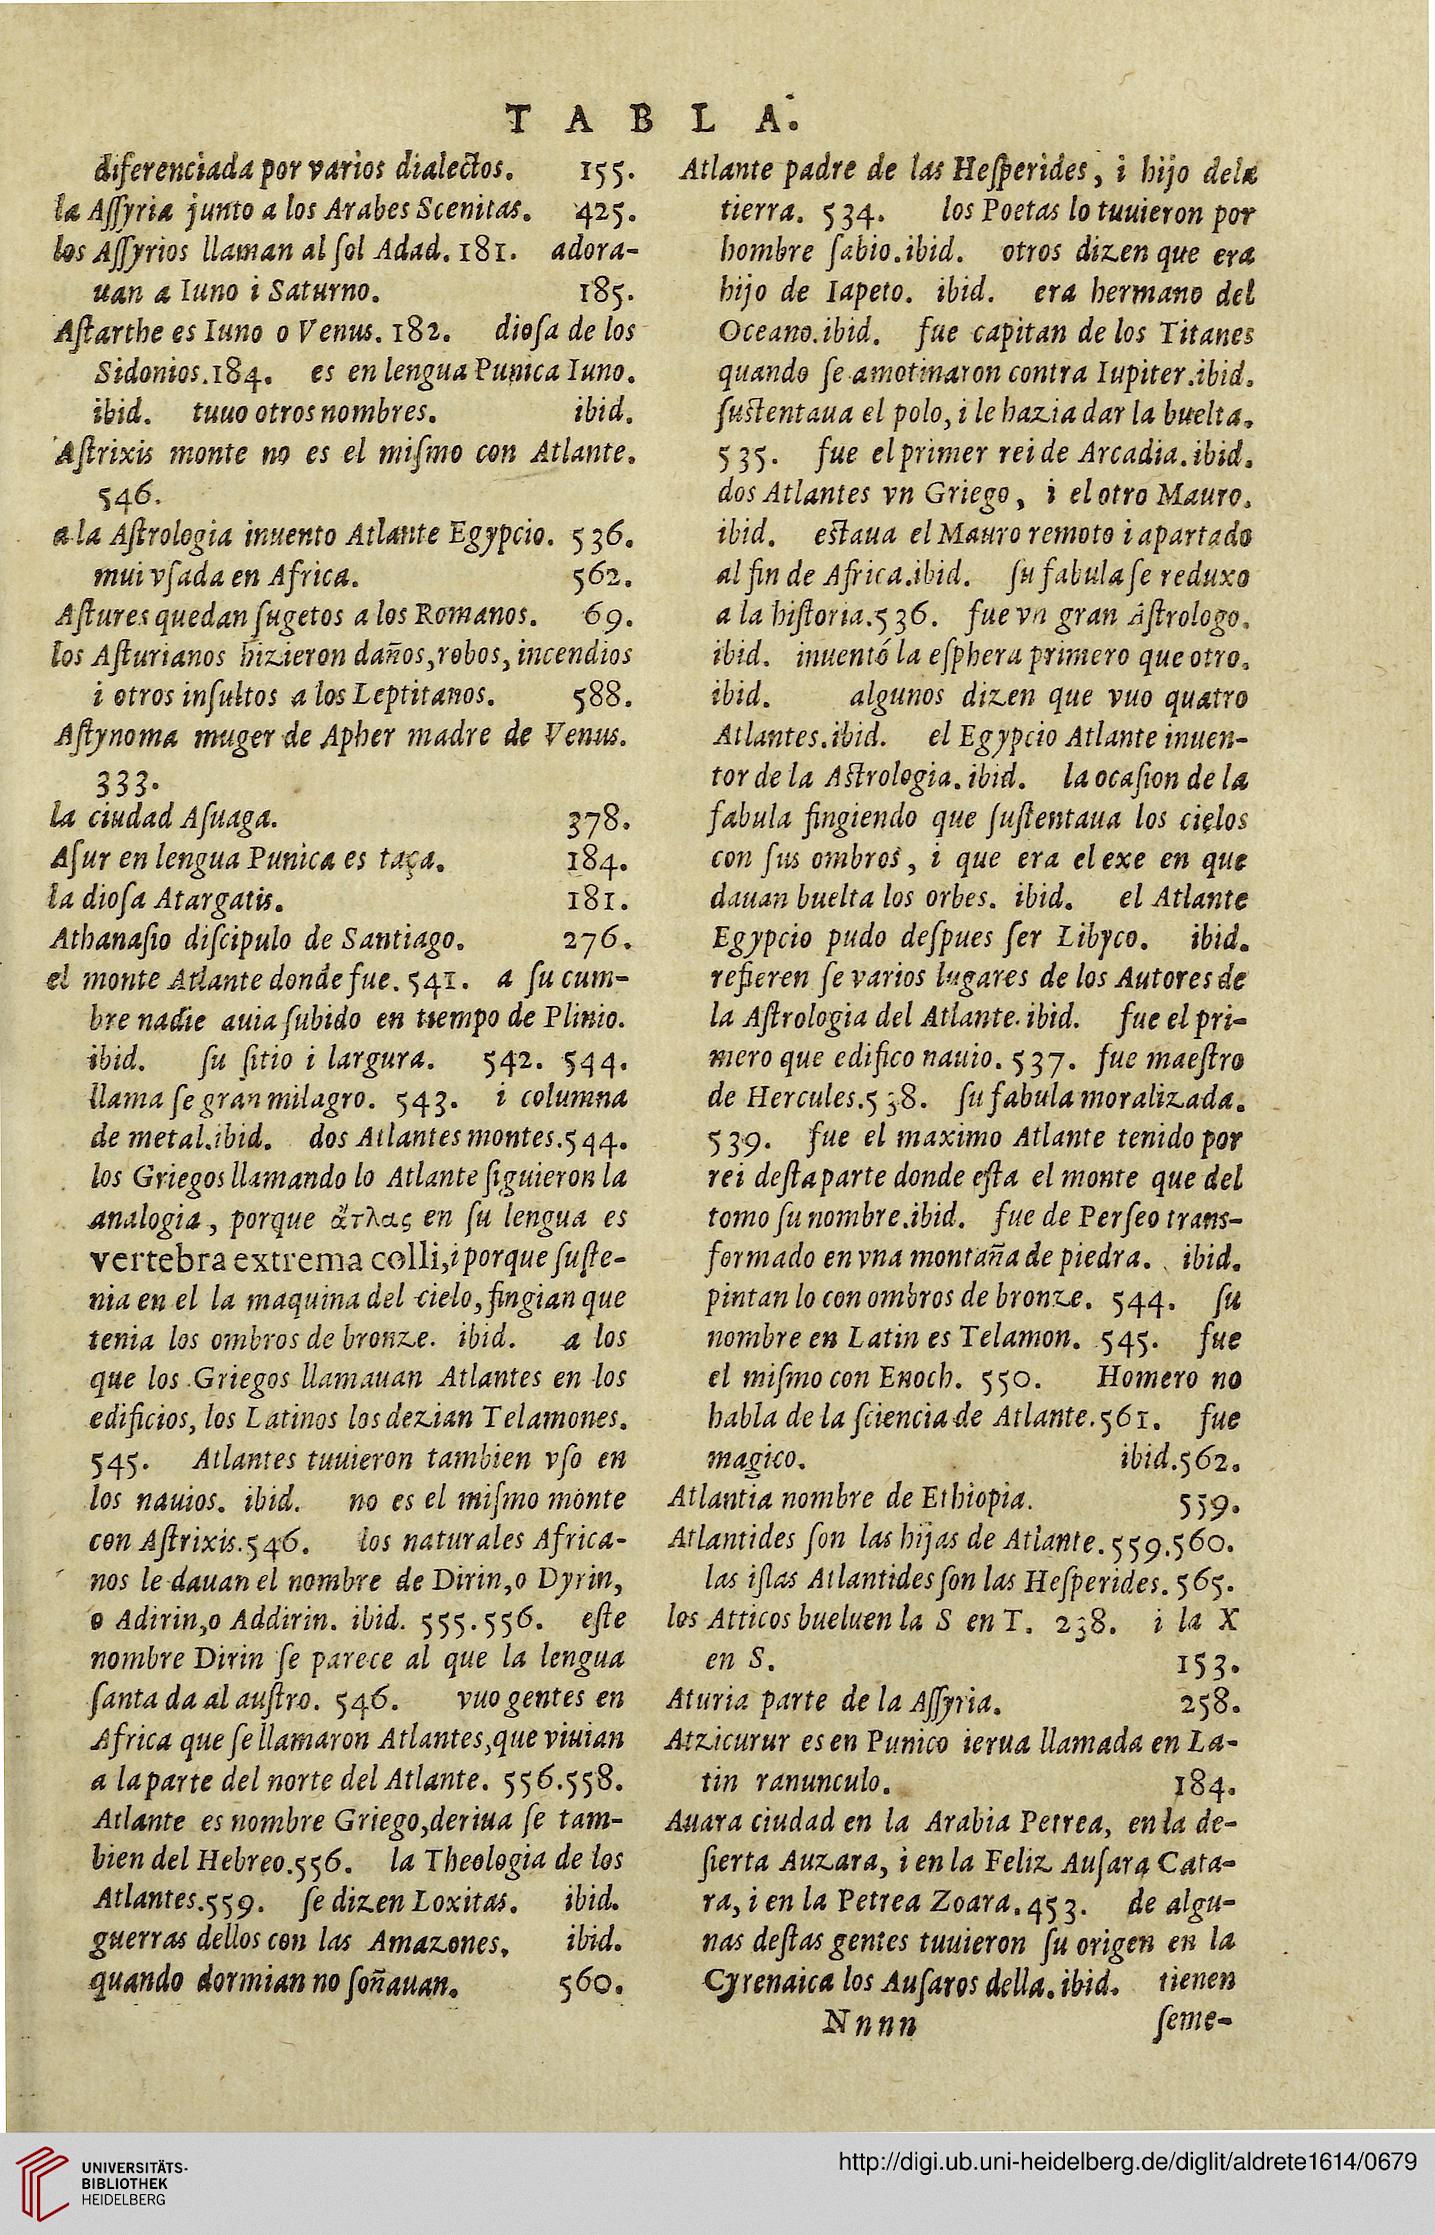 TABLA.
diferenciada por varios dialectos. 155.
la Aſſyria junto a los Arabes Scenitas. 425.
los Aſſyrios llaman al ſol Adad. 181. adora-
uan a Iuno i Saturno. 185.
Aſtarthe es Iuno o Venus. 182. dioſa de los
Sidonios. 184. es en lengua Punica Iuno.
ibid. tuuo otros nombres. ibid.
Aſtrixis monte no es el miſmo con Atlante.
546.
a la Aſtrologia inuento Atlante Egypcio. 536.
mui vſada en Africa. 562.
Aſtures quedan ſugetos a los Romanos. 69.
los Aſturianos hizieron daños, robos, incendios
i otros inſultos a los Leptitanos. 588.
Aſtynoma muger de Apher madre de Venus.
333.
la ciudad Aſuaga. 378.
Aſur en lengua Punica es taça. 184.
la dioſa Atargatis. 181.
Athanaſio diſcipulo de Santiago. 276.
el monte Atlante donde fue. 541. a ſu cum-
bre nadie auia ſubido en tiempo de Plinio.
ibid. ſu ſitio i largura. 542. 544.
llama ſe gran milagro. 543. i columna
de metal. ibid. dos Atlantes montes. 544.
los Griegos llamando lo Atlante ſiguieron la
analogia, porque ἄτλας en ſu lengua es
vertebra extrema colli, i porque ſuſte-
nia en el la maquina del cielo, fingian que
tenia los ombros de bronze. ibid. a los
que los Griegos llamauan Atlantes en los
edificios, los Latinos los dezian Telamones.
545. Atlantes tuuieron tambien vſo en
los nauios. ibid. no es el miſmo monte
con Aſtrixis. 546. los naturales Africa-
nos le dauan el nombre de Dirin, o Dyrin,
o Adirin, o Addirin. ibid. 555. 556. eſte
nombre Dirin ſe parece al que la lengua
ſanta da al auſtro. 546. vuo gentes en
Africa que ſe llamaron Atlantes, que viuian
a la parte del norte del Atlante. 556. 558.
Atlante es nombre Griego, deriua ſe tam-
bien del Hebreo. 556. la Theologia de los
Atlantes. 559. ſe dizen Loxitas. ibid.
guerras dellos con las Amazones. ibid.
quando dormian no ſoñauan. 560.
Atlante padre de las Heſperides, i hijo dela
tierra. 534. los Poetas lo tuuieron por
hombre ſabio. ibid. otros dizen que era
hijo de Iapeto. ibid. era hermano del
Oceano. ibid. fue capitan de los Titanes
quando ſe amotinaron contra Iupiter. ibid.
ſuſtentaua el polo, i le hazia dar la buelta.
535. fue el primer rei de Arcadia. ibid.
dos Atlantes vn Griego, i el otro Mauro.
ibid. eſtaua el Mauro remoto i apartado
al fin de Africa. ibid. ſu fabula ſe reduxo
a la hiſtoria. 536. fue vn gran Aſtrologo.
ibid. inuentó la eſphera primero que otro.
ibid. algunos dizen que vuo quatro
Atlantes. ibid. el Egypcio Atlante inuen-
tor de la Aſtrologia. ibid. la ocaſion de la
fabula fingiendo que ſuſtentaua los cielos
con ſus ombros, i que era el exe en que
dauan buelta los orbes. ibid. el Atlante
Egypcio pudo deſpues ſer Libyco. ibid.
refieren ſe varios lugares de los Autores de
la Aſtrologia del Atlante. ibid. fue el pri-
mero que edifico nauio. 537. fue maeſtro
de Hercules. 538. ſu fabula moralizada.
539. fue el maximo Atlante tenido por
rei deſta parte donde eſta el monte que del
tomo ſu nombre. ibid. fue de Perſeo trans-
formado en vna montaña de piedra. ibid.
pintan lo con ombros de bronze. 544. ſu
nombre en Latin es Telamon. 545. fue
el miſmo con Enoch. 550. Homero no
habla de la ſciencia de Atlante. 561. fue
magico. ibid. 562.
Atlantia nombre de Ethiopia. 559.
Atlantides ſon las hijas de Atlante. 559. 560.
las iſlas Atlantides ſon las Heſperides. 565.
los Atticos bueluen la S en T. 238. i la X
en S. 153.
Aturia parte de la Aſſyria. 258.
Atzicurur es en Punico ierua llamada en La-
tin ranunculo. 184.
Auara ciudad en la Arabia Petrea, en la de-
ſierta Auzara, i en la Feliz Auſara Cata-
ra, i en la Petrea Zoara. 453. de algu-
nas deſtas gentes tuuieron ſu origen en la
Cyrenaica los Auſaros della. ibid. tienen
Nnnn ſeme-
UNIVERSITÄTS-
BIBLIOTHEK
HEIDELBERG
http://digi.ub.uni-heidelberg.de/diglit/aldrete1614/0679